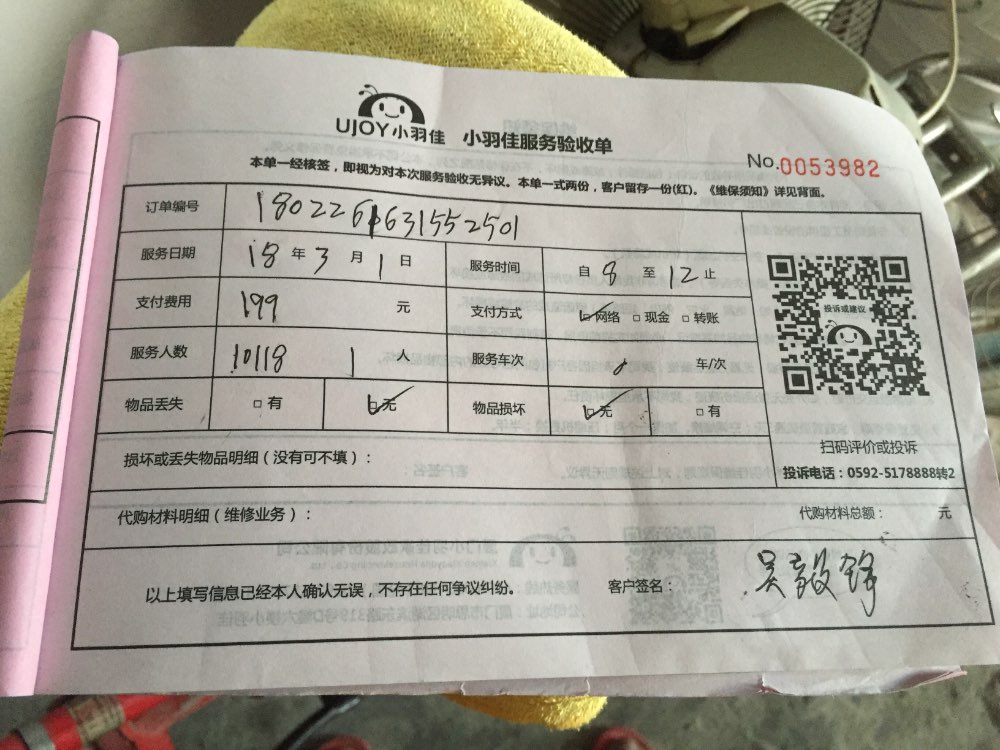 UJOY小羽佳 小羽佳服务验收单
No.0053982
本单一经核签，即视为对本次服务验收无异议。本单一式两份，客户留存一份(红)。《维保须知》详见背面。
订单编号 1802261631552501
服务日期 18 年 3 月 1 日 服务时间 自 8 至 12 止
支付费用 199 元 支付方式 网络 现金 转账
投诉或建议
服务人数 10118 1 人 服务车次 车/次
物品丢失 有 无 物品损坏 无 有
扫码评价或投诉
损坏或丢失物品明细（没有可不填）：
投诉电话：0592-5178888转2
代购材料明细（维修业务）： 代购材料总额： 元
以上填写信息已经本人确认无误，不存在任何争议纠纷。 客户签名： 吴毅锋